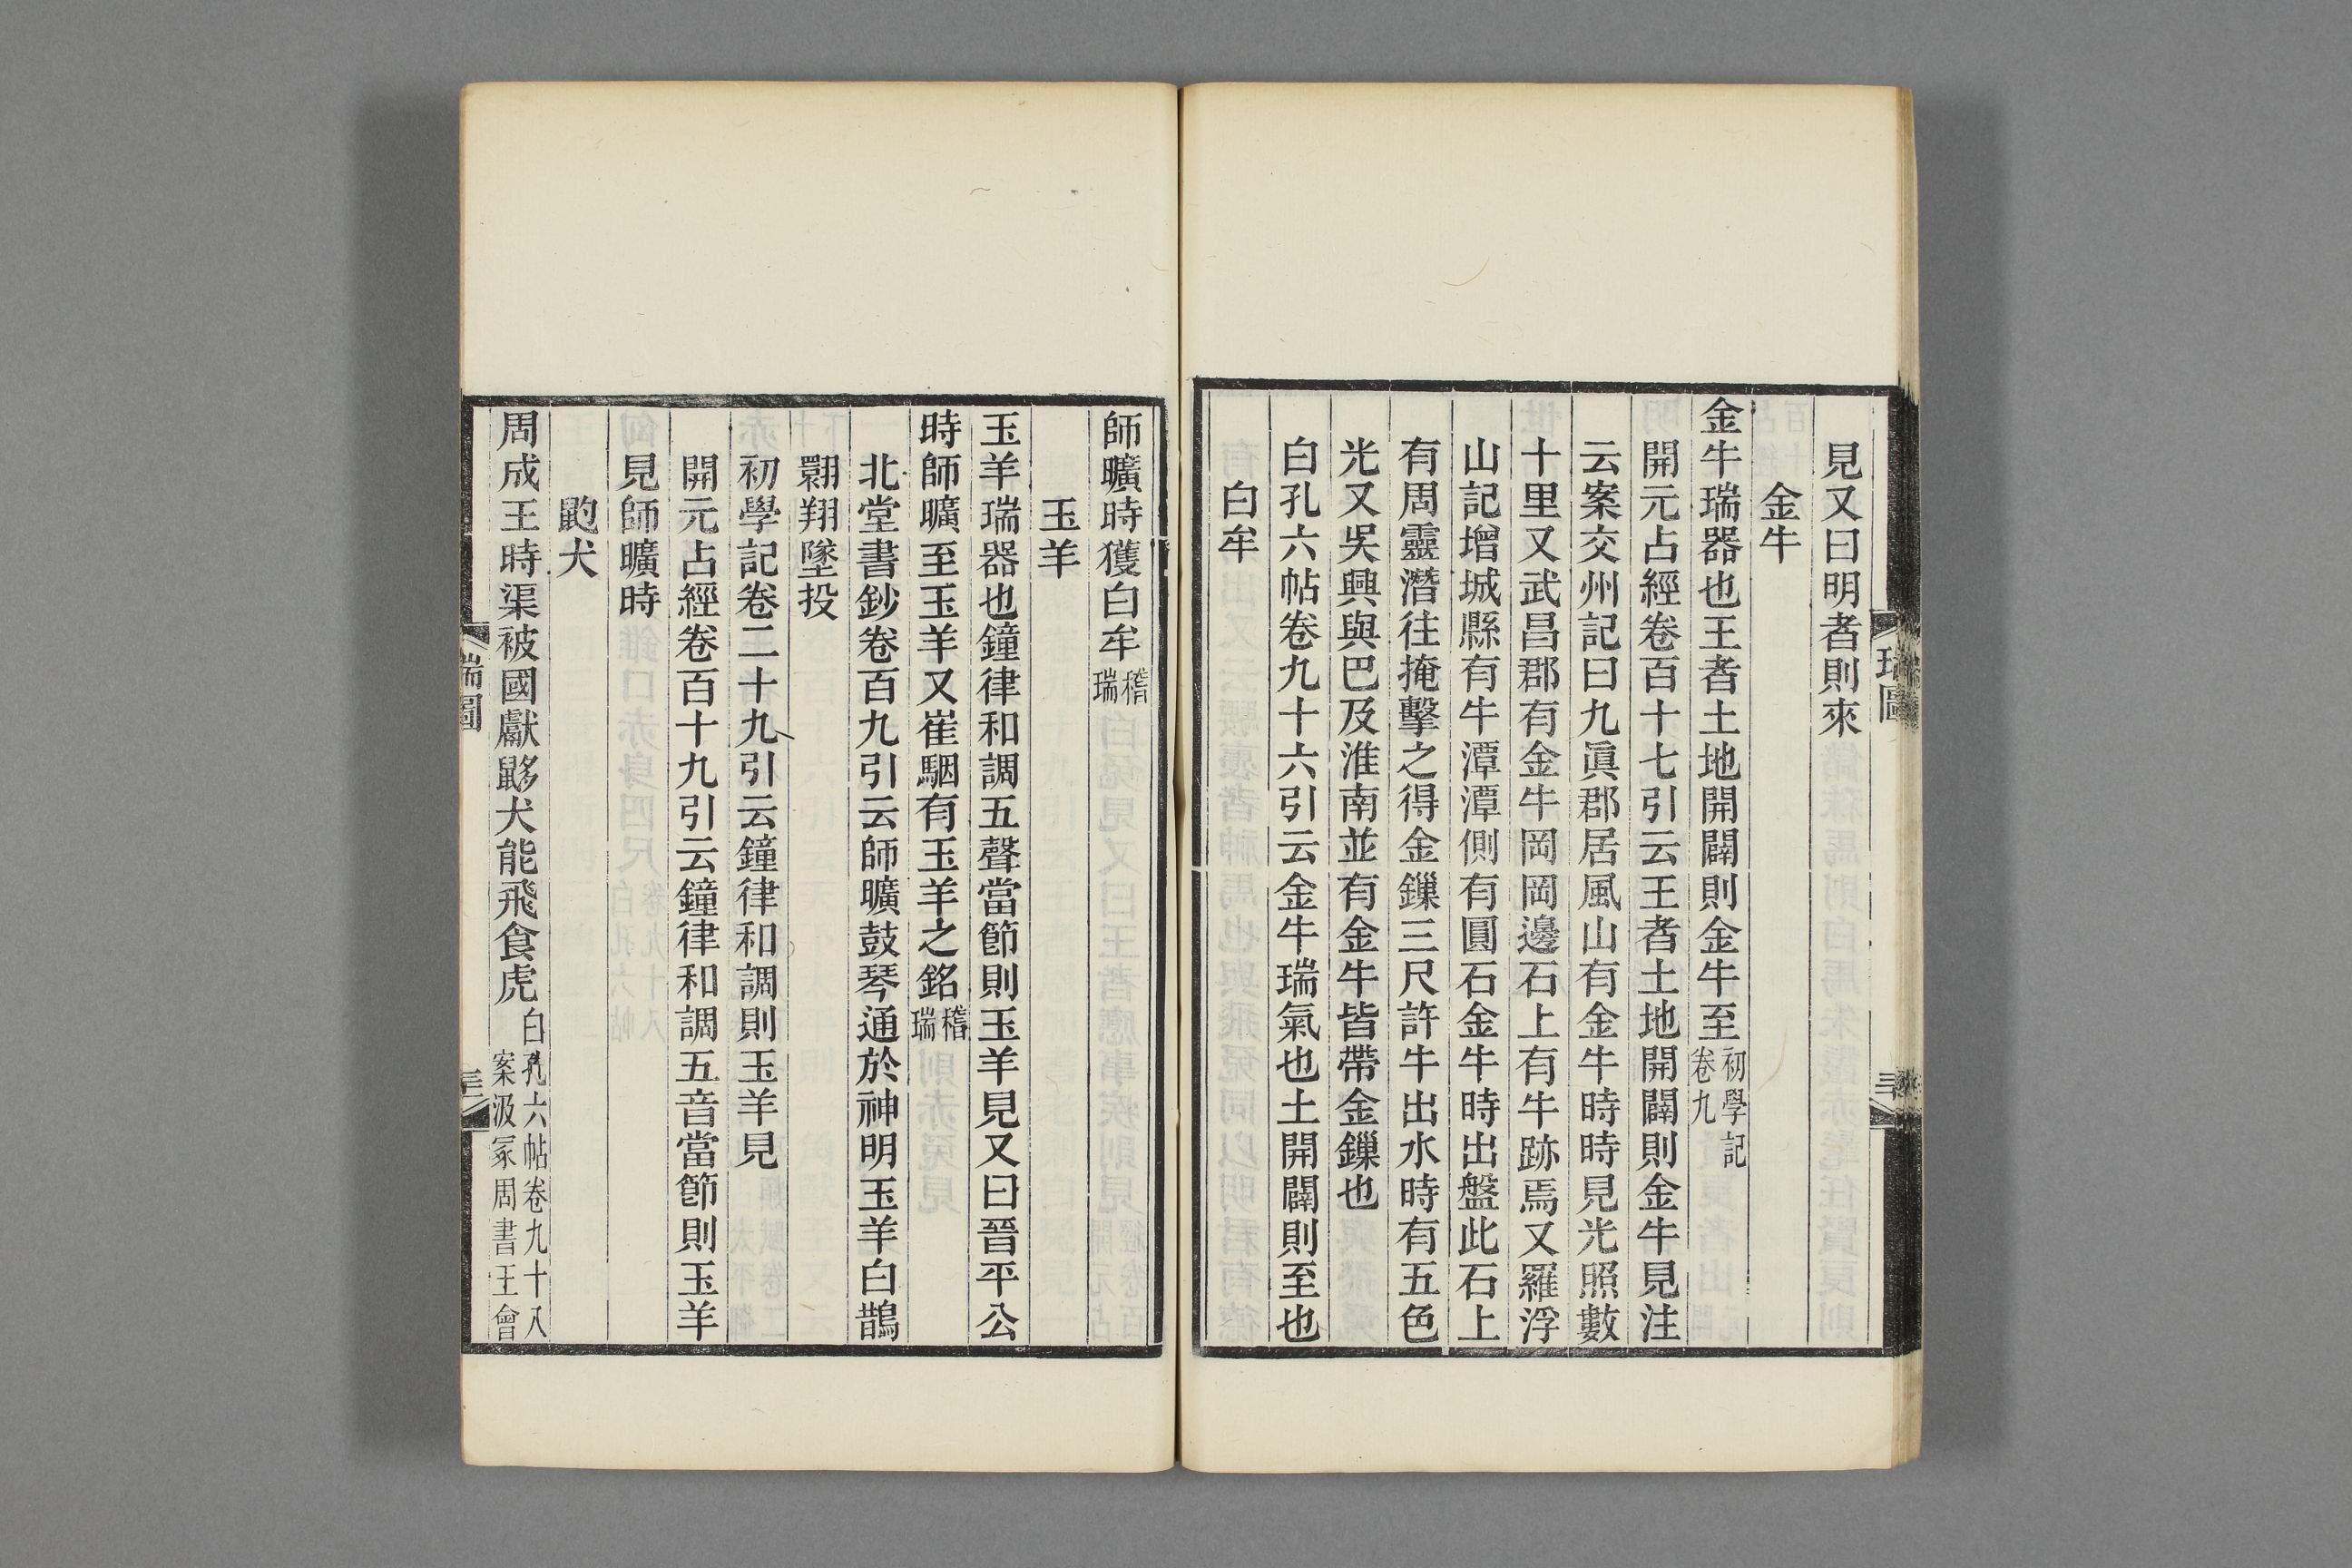 見又曰明者則來
金牛
金牛瑞器也王者土地開闢則金牛至初學記卷九
開元占經卷百十七引云王者土地開闢則金牛見注
云案交州記曰九眞郡居風山有金牛時時見光照數
十里又武昌郡有金牛岡岡邊石上有牛跡焉又羅浮
山記增城縣有牛潭潭側有圓石金牛時出盤此石上
有周靈潛往掩擊之得金鏁三尺許牛出水時有五色
光又吳興與巴及淮南並有金牛皆帶金鏁也
白孔六帖卷九十六引云金牛瑞氣也土開闢則至也
白牟
師曠時獲白牟稽瑞
玉羊
玉羊瑞器也鐘律和調五聲當節則玉羊見又曰晉平公
時師曠至玉羊又崔駰有玉羊之銘稽瑞
北堂書鈔卷百九引云師曠鼓琴通於神明玉羊白鵲
翾翔墜投
初學記卷二十九引云鐘律和調則玉羊見
開元占經卷百十九引云鐘律和調五音當節則玉羊
見師曠時
鼩犬
周成王時渠被國獻鼢犬能飛食虎白孔六帖卷九十八案汲冢周書王會
瑞圖